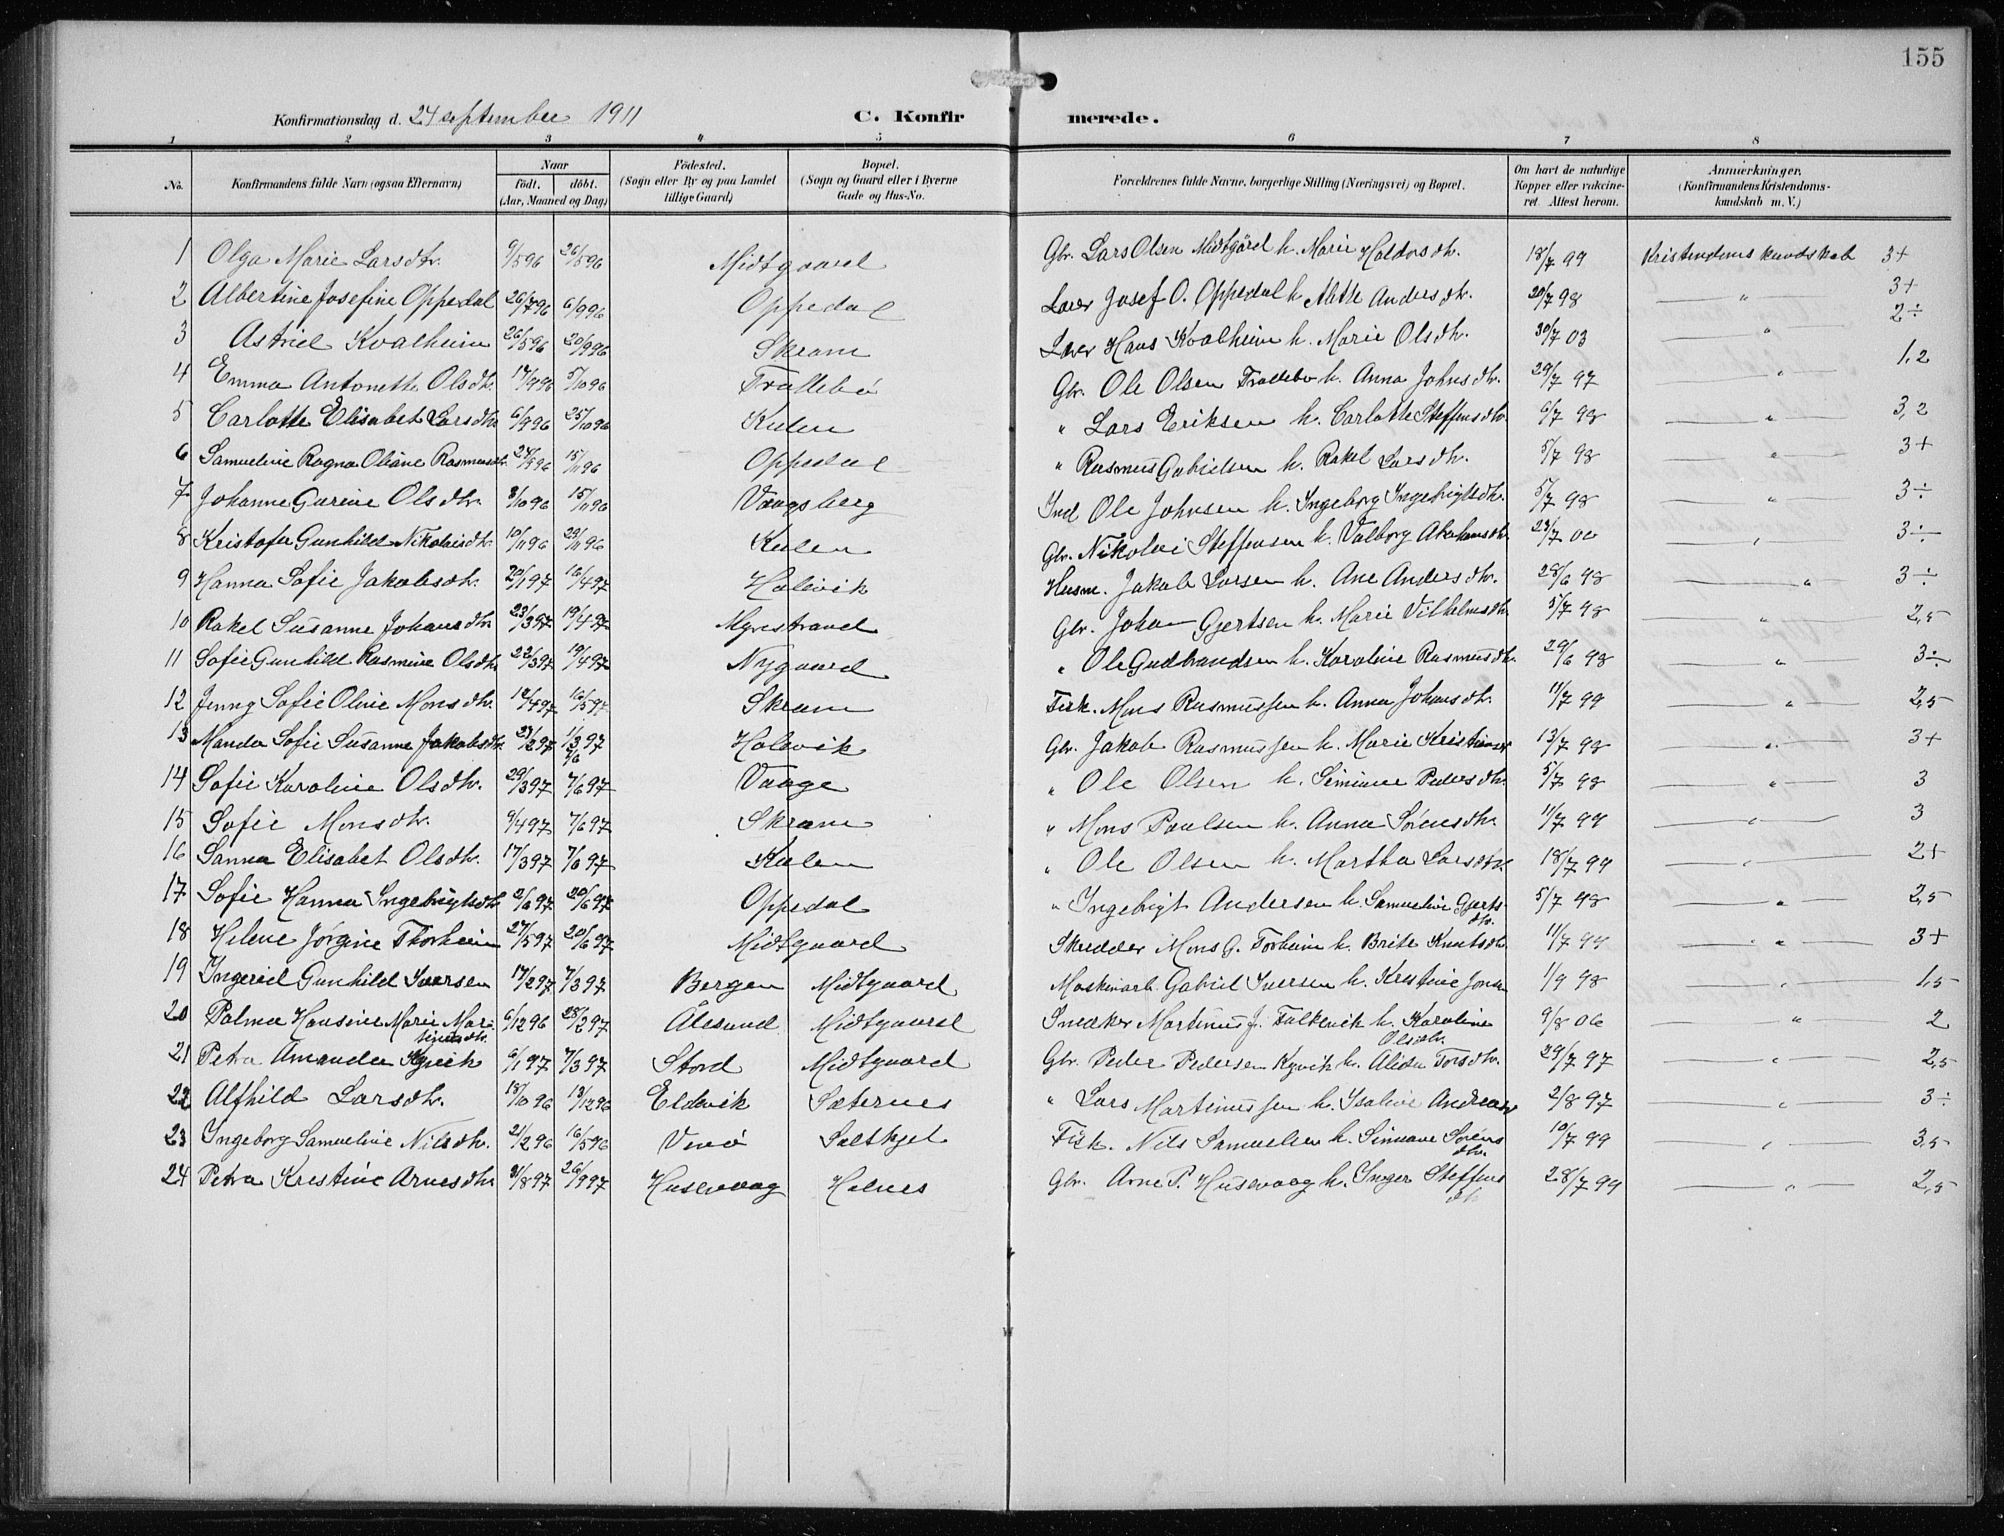 155
Konfirmationsdag d. 24 september 1911 C. Konfirmerede.
1 2 3 4 5 6 7 8
No. Konfirmandens fulde Navn (ogsaa Efternavn) Naar födt. döbt. (Aar, Maaned og Dag) Födested. (Sogn eller By og paa Landet tillige Gaard) Bopæl. (Sogn og Gaard eller i Byerne Gade og Hus-No. Forældrenes fulde Navne, borgerlige Stilling (Næringsvei) og Bopæl. Om havt de naturlige Kopper eller vakcineret. Attest herom. Anmærkninger. (Konfirmandens Kristendomskundskab m. V.)
1 Olga Marie Larsdtr. 9/5 96 26/5 96 Midtgaard Gbr. Lars Olsen Midtgård h. Marie Haldorsdtr. 18/7 99 Kristendoms kundskab 3+
2 Albertine Josefine Oppedal 26/7 96 6/9 96 Oppedal Lærer Josef O. Oppedal h. Mette Andersdtr. 20/7 98 " 3+
3 Astrid Kvalheim 26/5 96 20/9 96 Skram Lærer Hans Kvalheim h. Marie Olsdtr. 30/7 03 " 2÷
4 Emma Antonette Olsdtr. 17/9 96 5/10 96 Trællebø Gbr. Ole Olsen Trællebø h. Anna Johnsdtr. 29/7 97 " 1,2
5 Carlotte Elisabet Larsdtr. 6/9 96 25/10 96 Kulen " Lars Eriksen h. Carlotte Steffensdtr. 6/7 98 " 3,2
6 Samueline Ragna Oliane Rasmusdtr. 24/9 96 15/11 96 Oppedal " Rasmus Gabielsen h. Rakel Larsdtr. 5/7 98 " 3+
7 Johanne Gurine Olsdtr. 8/10 96 15/11 96 Vaagsberg Ind Ole Johnsen h. Ingeborg Ingebrigtsdtr. 5/7 98 " 3÷
8 Kristofa Gunhild Nikolaisdtr. 10/11 96 29/11 96 Kulen Gbr. Nikolai Steffensen h. Valborg Abrahamsdtr. 23/7 00 " 3÷
9 Hanna Sofie Jakobsdtr. 20/1 97 16/4 97 Holevik Husm. Jakob Larsen h. Ane Andersdtr. 28/6 98 " 3÷
10 Rakel Susanne Johansdtr. 23/3 97 19/4 97 Myrestrand Gbr. Johan Gjertsen h. Marie Vilhelmsdtr. 5/7 98 " 2,5
11 Sofie Gunhild Rasmine Olsdtr. 22/3 97 19/4 97 Nygaard " Ole Gudbrandsen h. Karoline Rasmusdtr. 29/6 98 " 3÷
12 Jenny Sofie Oline Monsdtr. 12/4 97 16/5 97 Skram Fisk. Mons Rasmussen h. Anna Johansdtr. 11/7 99 " 2,5
13 Manda Sofie Susanne Jakobsdtr. 27/2 97 1/3 97 7/6 Holevik Gbr. Jakob Rasmussen h. Marie Kristians 13/7 98 " 3+
14 Sofie Karoline Olsdtr. 29/3 97 7/6 97 Vaage " Ole Olsen h. Simiane Pedersdtr. 5/7 98 " 3
15 Sofie Monsdtr. 9/4 97 7/6 97 Skram " Mons Paulsen h. Anna Sörensdtr. 11/7 99 " 3
16 Sanna Elisabet Olsdtr. 17/3 97 7/6 97 Kulen " Ole Olsen h. Martha Larsdtr. 18/7 99 " 2+
17 Sofie Hanna Ingebrigtsdtr. 2/6 97 20/6 97 Oppedal " Ingebrigt Andersen h. Samueline Gjertsdtr. 5/7 98 " 2,5
18 Helene Jørgine Thorheim 27/5 97 20/6 97 Midtgaard Skrædder Mons G. Torheim h. Brite Knutsdtr. 11/7 99 " 3+
19 Ingerid Gunhild Iversen 17/2 97 7/3 97 Bergen Midtgaard Maskinarb. Gabriel Iversen h. Kristine Jonsen 1/9 98 1,5
20 Palma Hansine Marie Martinusdtr. 6/12 96 28/2 97 Ålesund Midtgaard Snedker Martinus J. Falkevik h. Karoline Olsdtr. 9/8 06 " 2
21 Petra Amanda Kyvik 6/1 97 7/3 97 Stord Midtgaard Gbr. Peder Pedersen Kyvik h. Alida Torsdtr. 29/7 97 " 2,5
22 Alfhild Larsdtr. 18/10 96 13/12 96 Eldevik Sæternes " Lars Martinussen h. Isaline Andreas 2/8 97 " 3÷
23 Ingeborg Samueline Nilsdtr. 21/2 96 16/5 96 Verö Saltkjel Fisk. Nils Samuelsen h. Simiane Sörensdtr. 10/7 99 " 3,5
24 Petra Kristine Arnesdtr. 31/8 97 26/9 97 Husevaag Halnes Gbr. Arne P. Husevaag h. Inger Steffensdtr 28/7 99 " 2,5